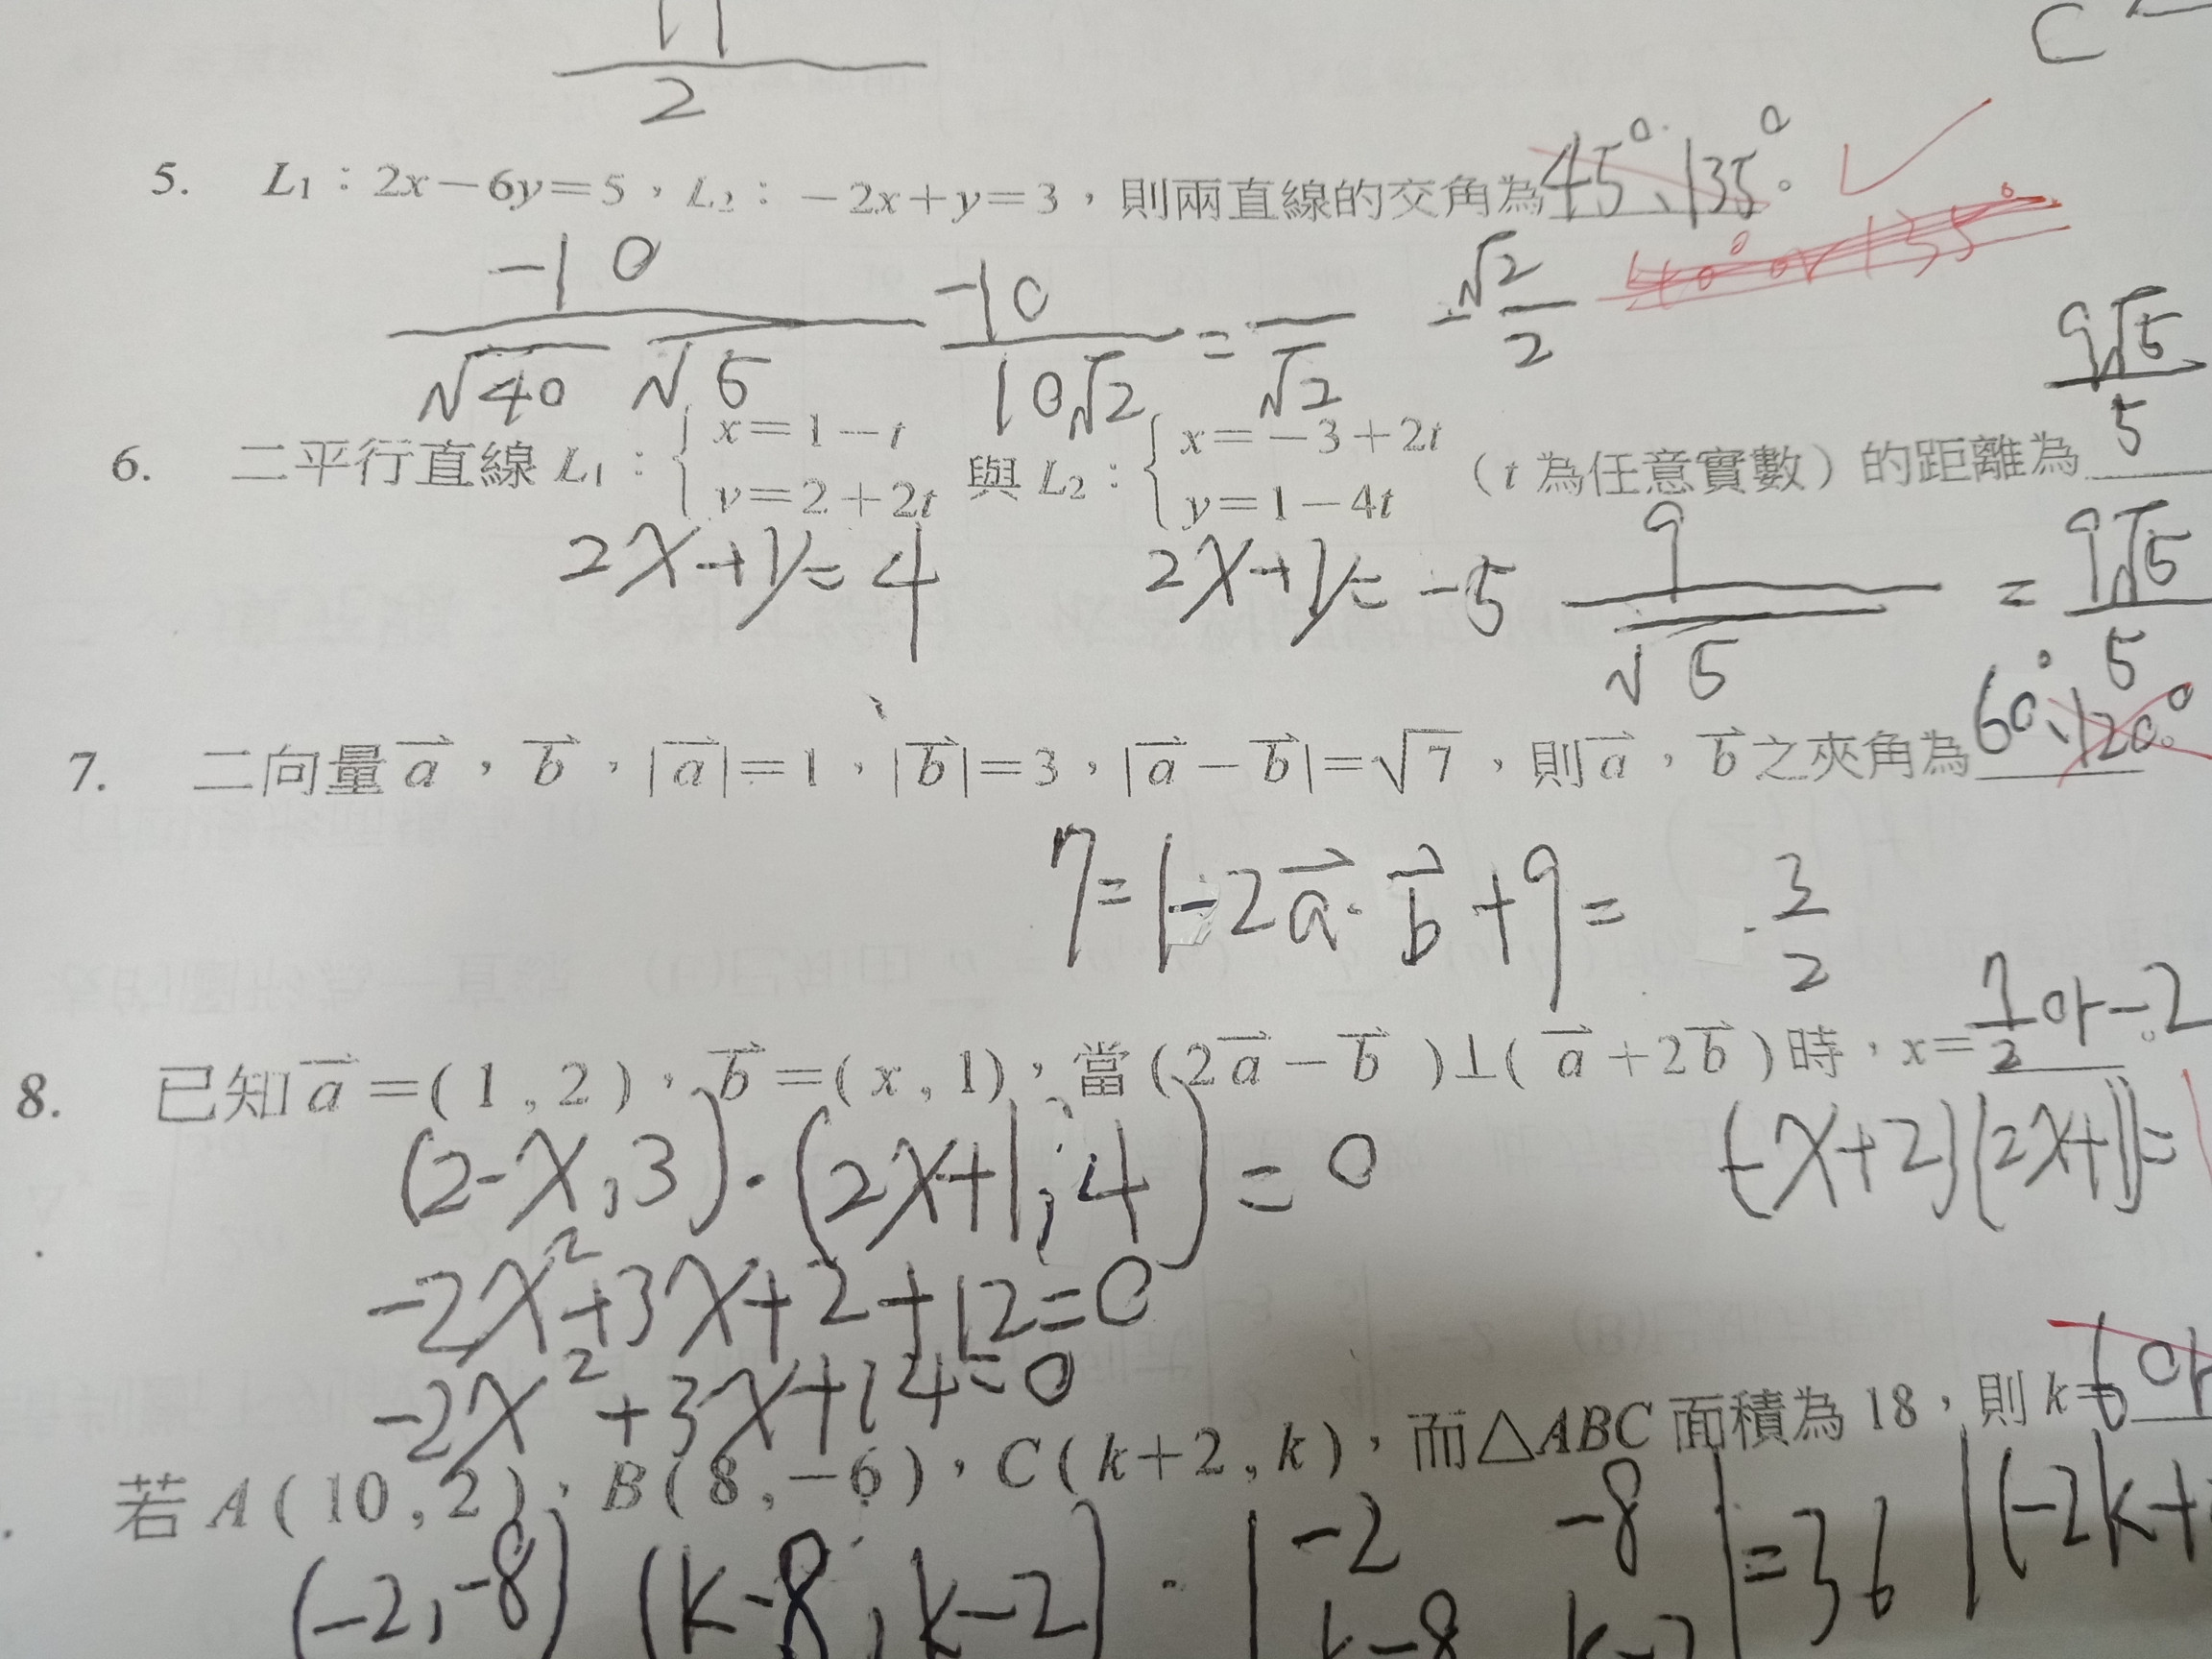 11
2
C
5. L₁：2x－6y＝5，L₂：－2x＋y＝3，則兩直線的交角為45°、135°。
40° or 135°
-10 / √40 √5
-10 / 10√2 = — / √2
-√2 / 2
9√5 / 5
6. 二平行直線 L₁：{x＝1－t y＝2＋2t 與 L₂：{x＝－3＋2t y＝1－4t （t 為任意實數）的距離為
2x+y=4
2x+y=-5
9 / √5 = 9√5 / 5
7. 二向量 a，b，|a|＝1，|b|＝3，|a－b|＝√7，則 a，b 之夾角為60°、120°。
7=1-2a·b+9=
3 / 2
8. 已知 a＝(1，2)，b＝(x，1)，當(2a－b)⊥(a＋2b)時，x＝7/2 or -2。
(2-x,3)·(2x+1,4)=0
(-x+2)(2x+1)=
-2x²+3x+2+12=0
-2x²+3x+14=0
若 A(10，2)，B(8，－6)，C(k＋2，k)，而△ABC 面積為 18，則 k＝6 or
(-2,-8) (k-8,k-2)
|-2 -8 k-8 k-2|=36 |(-2k+